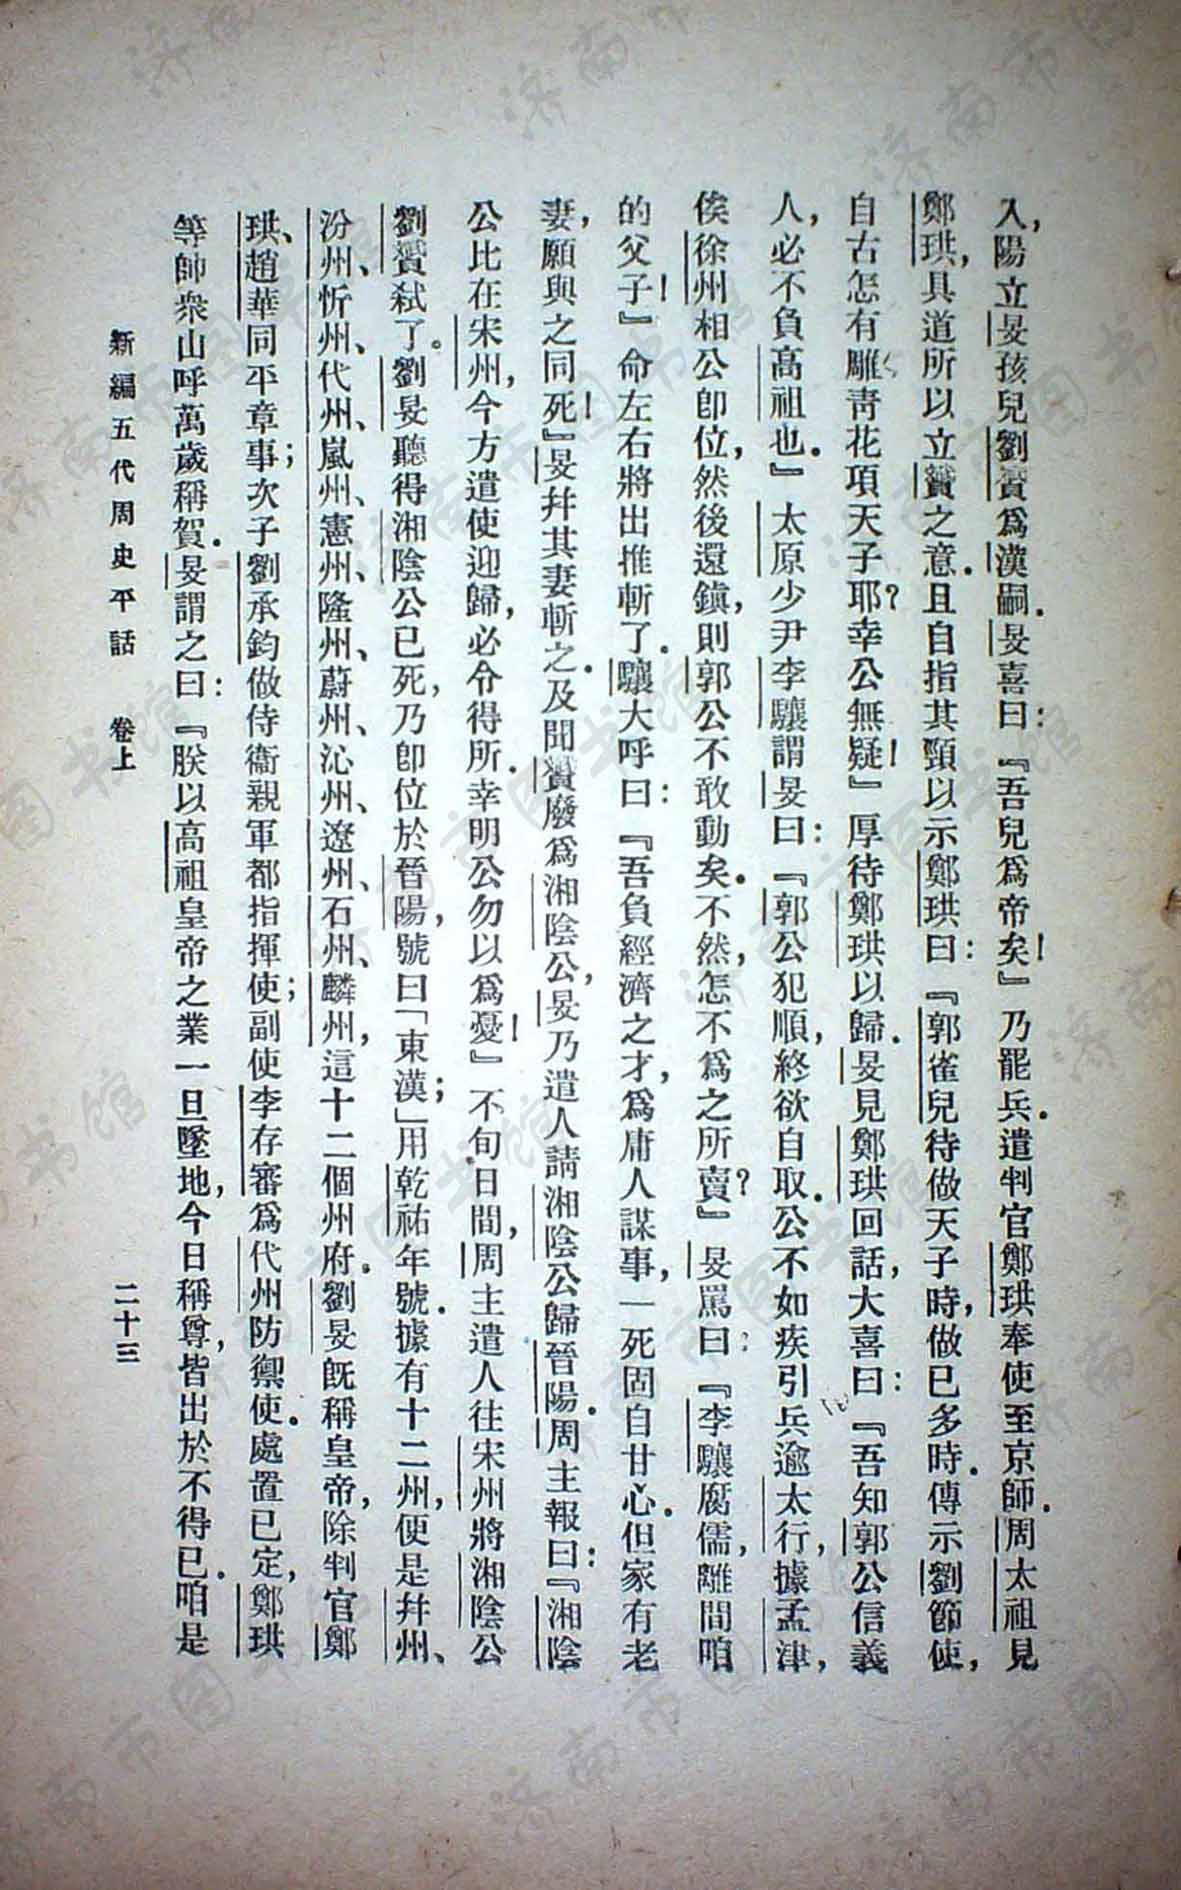 入，陽立旻孩兒劉贇爲漢嗣．旻喜曰：『吾兒爲帝矣！』乃罷兵．遣判官鄭珙奉使至京師．周太祖見
鄭珙，具道所以立贇之意．且自指其頸以示鄭珙曰：『郭雀兒待做天子時，做已多時．傳示劉節使，
自古怎有雕靑花項天子耶？幸公無疑！』厚待鄭珙以歸．旻見鄭珙回話，大喜曰：『吾知郭公信義
人，必不負高祖也．』太原少尹李驤謂旻曰：『郭公犯順，終欲自取．公不如疾引兵逾太行，據孟津，
俟徐州相公卽位，然後還鎭，則郭公不敢動矣．不然，怎不爲之所賣？』旻罵曰：『李驤腐儒，離間咱
的父子！』命左右將出推斬了．驤大呼曰：『吾負經濟之才，爲庸人謀事，一死固自甘心．但家有老
妻，願與之同死！』旻幷其妻斬之．及聞贇廢爲湘陰公，旻乃遣人請湘陰公歸晉陽．周主報曰：『湘陰
公比在宋州，今方遣使迎歸，必令得所．幸明公勿以爲憂！』不旬日間，周主遣人往宋州將湘陰公
劉贇弒了。劉旻聽得湘陰公已死，乃卽位於晉陽，號曰「東漢」；用乾祐年號．據有十二州，便是幷州、
汾州、忻州、代州、嵐州、憲州、隆州、蔚州、沁州、遼州、石州、麟州，這十二個州府．劉旻旣稱皇帝，除判官鄭
珙、趙華同平章事；次子劉承鈞做侍衞親軍都指揮使；副使李存審爲代州防禦使．處置已定，鄭珙
等帥衆山呼萬歲稱賀．旻謂之曰：『朕以高祖皇帝之業一旦墜地，今日稱尊，皆出於不得已．咱是
新編五代周史平話　卷上　二十三
济南市图书馆